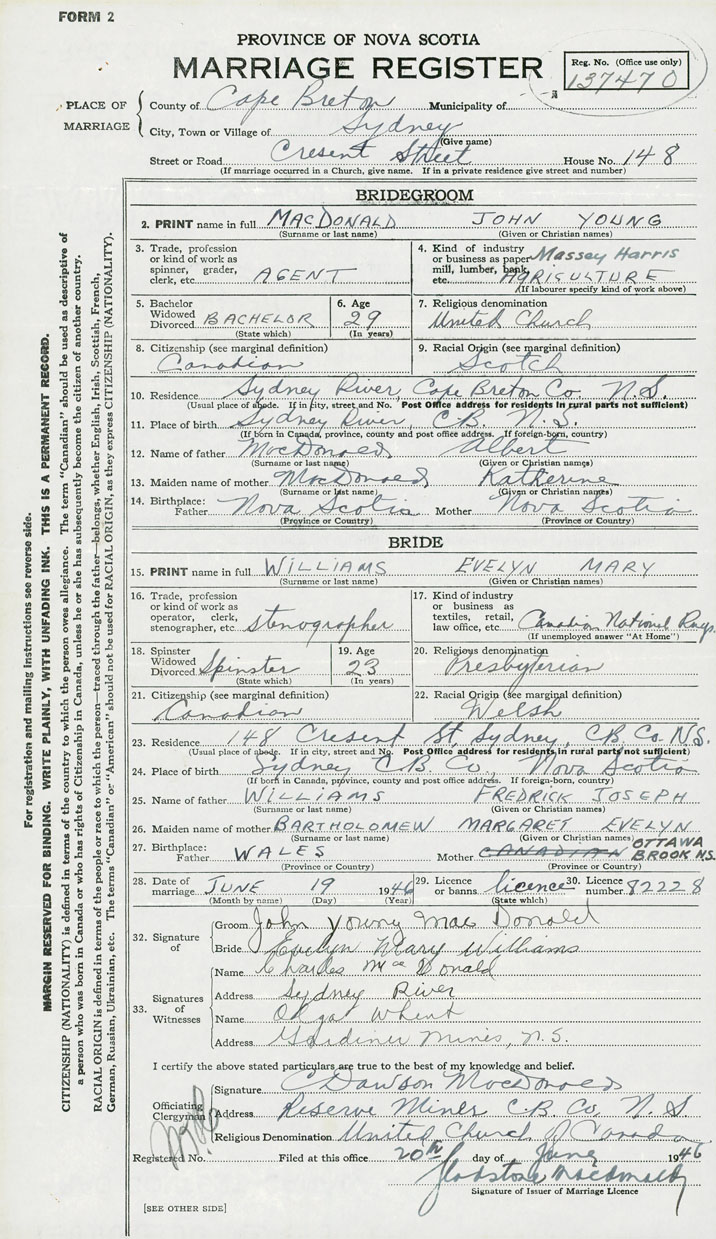 FORM 2
PROVINCE OF NOVA SCOTIA
MARRIAGE REGISTER
Reg. No. (Office use only)
137470
PLACE OF MARRIAGE
County of Cape Breton Municipality of
City, Town or Village of Sydney
(Give name)
Street or Road Cresent Street House No. 148
(If marriage occurred in a Church, give name. If in a private residence give street and number)
BRIDEGROOM
2. PRINT name in full MACDONALD JOHN YOUNG
(Surname or last name) (Given or Christian names)
3. Trade, profession or kind of work as spinner, grader, clerk, etc. AGENT
4. Kind of industry or business as paper mill, lumber, bank, etc. Massey Harris AGRICULTURE
(If labourer specify kind of work above)
5. Bachelor Widowed Divorced BACHELOR
(State which)
6. Age 29
(In years)
7. Religious denomination
United Church
8. Citizenship (see marginal definition)
Canadian
9. Racial Origin (see marginal definition)
Scotch
10. Residence Sydney River, Cape Breton Co. N.S.
(Usual place of abode. If in city, street and No. Post Office address for residents in rural parts not sufficient)
11. Place of birth Sydney River, C.B. N.S.
(If born in Canada, province, county and post office address. If foreign-born, country)
12. Name of father MacDonald Albert
(Surname or last name) (Given or Christian names)
13. Maiden name of mother MacDonald Katherine
(Surname or last name) (Given or Christian names)
14. Birthplace: Father Nova Scotia Mother Nova Scotia
(Province or Country) (Province or Country)
BRIDE
15. PRINT name in full WILLIAMS EVELYN MARY
(Surname or last name) (Given or Christian names)
16. Trade, profession or kind of work as operator, clerk, stenographer, etc. stenographer
17. Kind of industry or business as textiles, retail, law office, etc. Canadian National Rwys.
(If unemployed answer "At Home")
18. Spinster Widowed Divorced Spinster
(State which)
19. Age 23
(In years)
20. Religious denomination
Presbyterian
21. Citizenship (see marginal definition)
Canadian
22. Racial Origin (see marginal definition)
Welsh
23. Residence 148 Cresent St, Sydney, C.B. Co. N.S.
(Usual place of abode. If in city, street and No. Post Office address for residents in rural parts not sufficient)
24. Place of birth Sydney C.B. Co., Nova Scotia
(If born in Canada, province, county and post office address. If foreign-born, country)
25. Name of father WILLIAMS FREDRICK JOSEPH
(Surname or last name) (Given or Christian names)
26. Maiden name of mother BARTHOLOMEW MARGARET EVELYN
(Surname or last name) (Given or Christian names)
27. Birthplace: Father WALES Mother CANADIAN OTTAWA BROOK N.S.
(Province or Country) (Province or Country)
28. Date of marriage JUNE 19 1946
(Month by name) (Day) (Year)
29. Licence or banns licence
(State which)
30. Licence number 82228
32. Signature of
Groom John Young MacDonald
Bride Evelyn Mary Williams
33. Signatures of Witnesses
Name Charles MacDonald
Address Sydney River
Name Olga
Address Gardiner Mines, N.S.
I certify the above stated particulars are true to the best of my knowledge and belief.
Officiating Clergyman
Signature C Dawson MacDonald
Address Reserve Mines C.B. Co. N.S.
Religious Denomination United Church of Canada
Registered No. Filed at this office 20th day of June 1946
Gladstone MacDonald
Signature of Issuer of Marriage Licence
[SEE OTHER SIDE]
For registration and mailing instructions see reverse side.
MARGIN RESERVED FOR BINDING. WRITE PLAINLY, WITH UNFADING INK. THIS IS A PERMANENT RECORD.
CITIZENSHIP (NATIONALITY) is defined in terms of the country to which the person owes allegiance. The term "Canadian" should be used as descriptive of
a person who was born in Canada or who has rights of Citizenship in Canada, unless he or she has subsequently become the citizen of another country.
RACIAL ORIGIN is defined in terms of the people or race to which the person—traced through the father—belongs, whether English, Irish, Scottish, French,
German, Russian, Ukrainian, etc. The terms "Canadian" or "American" should not be used for RACIAL ORIGIN, as they express CITIZENSHIP (NATIONALITY).